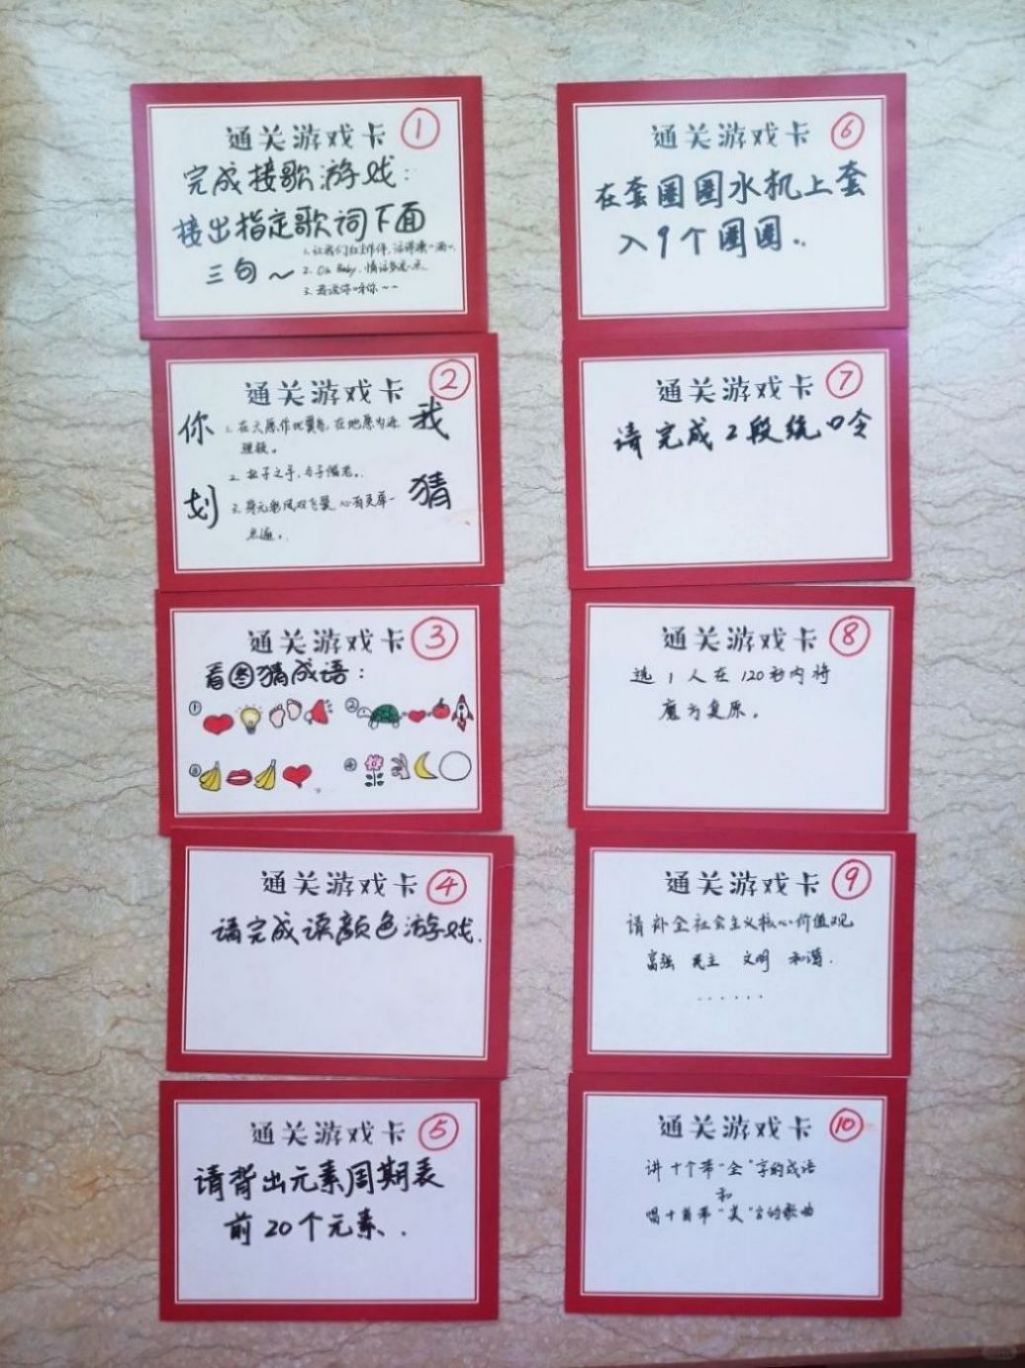 通关游戏卡 ①
完成接歌游戏：
接出指定歌词下面
三句～
1. 让我们红尘作伴，活得潇洒
2. Oh Baby, 情话多说一点
3.
通关游戏卡 ②
你划我猜
1. 在天愿作比翼鸟，在地愿为连
理枝。
2. 执子之手，与子偕老。
3. 身无彩凤双飞翼，心有灵犀一
点通。
通关游戏卡 ③
看图猜成语：
①
②
③
④
通关游戏卡 ④
请完成读颜色游戏.
通关游戏卡 ⑤
请背出元素周期表
前20个元素.
通关游戏卡 ⑥
在套圈圈水机上套
入9个圈圈.
通关游戏卡 ⑦
请完成2段绕口令
通关游戏卡 ⑧
选1人在120秒内将
魔方复原。
通关游戏卡 ⑨
请补全社会主义核心价值观
富强 民主 文明 和谐.
......
通关游戏卡 ⑩
讲十个带"全"字的成语
和
唱十首带"美"字的歌曲